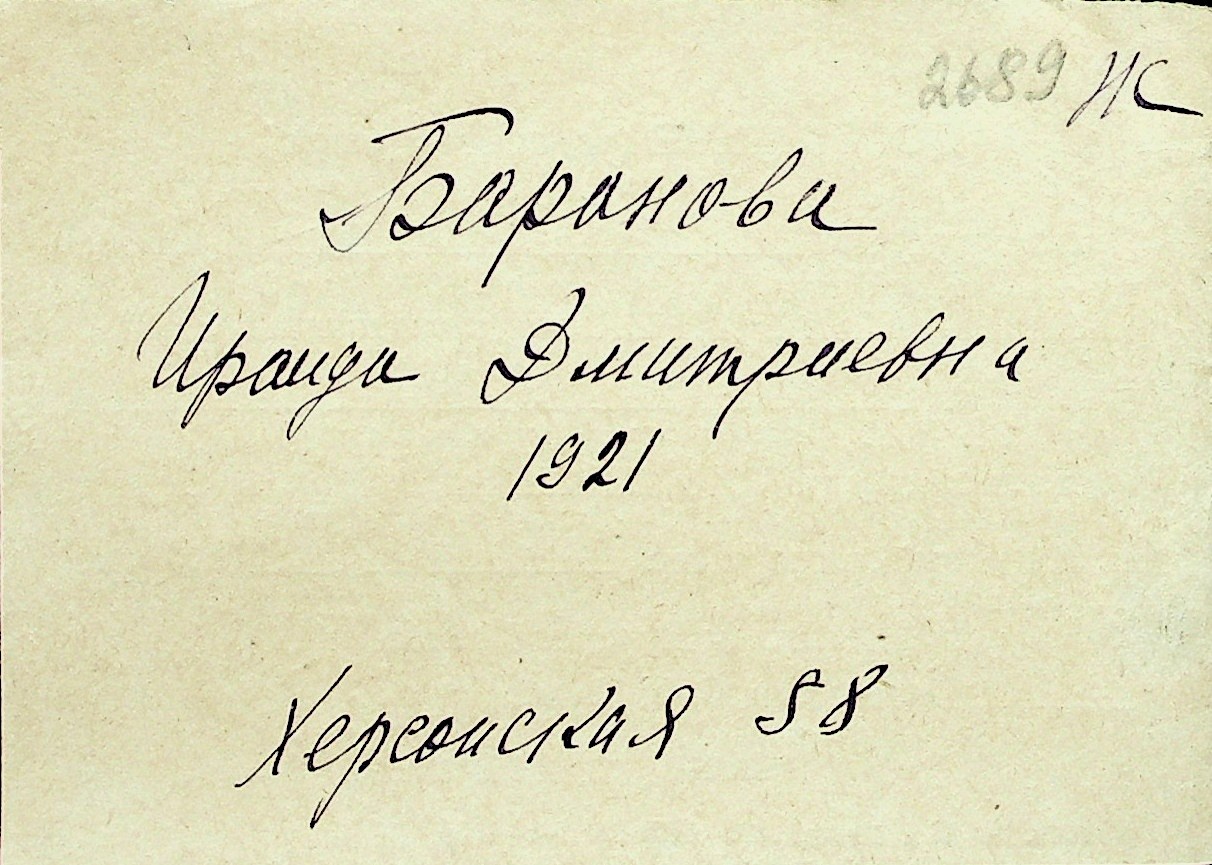 2689 ж
Баранова
Ираида Дмитриевна
1921
Херсонская 58